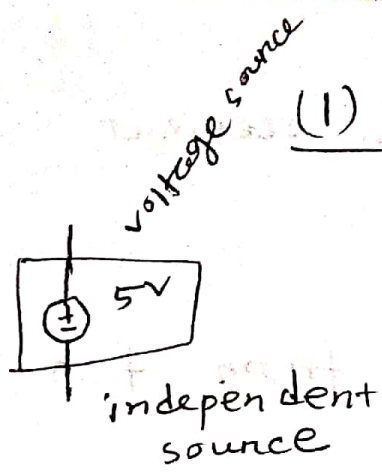 (1)
voltage source
5V
independent
source